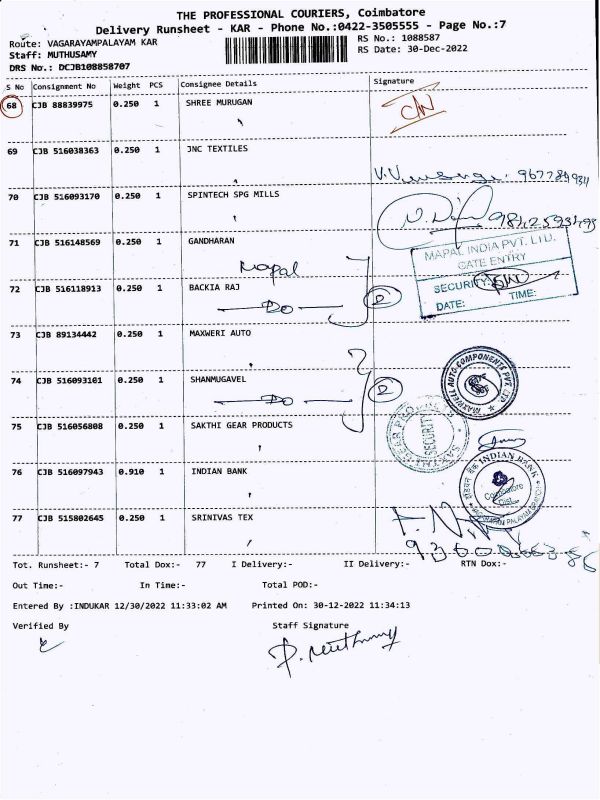 THE PROFESSIONAL COURIERS, Coimbatore
Delivery Runsheet - KAR - Phone No.:0422-3505555 - Page No.:7
Route: VAGARAYAMPALAYAM KAR RS No.: 1088587
Staff: MUTHUSAMY RS Date: 30-Dec-2022
DRS No.: DCJB108858707
S No Consignment No Weight PCS Consignee Details Signature
68 CJB 88839975 0.250 1 SHREE MURUGAN
69 CJB 516038363 0.250 1 JNC TEXTILES
70 CJB 516093170 0.250 1 SPINTECH SPG MILLS
71 CJB 516148569 0.250 1 GANDHARAN
Mapal
MAPAL INDIA PVT. LTD.
GATE ENTRY
SECURITY:
DATE: TIME:
72 CJB 516118913 0.250 1 BACKIA RAJ
Do 2
73 CJB 89134442 0.250 1 MAXWERI AUTO
74 CJB 516093101 0.250 1 SHANMUGAVEL
Do 2
MAXWELL AUTO COMPONENTS PVT. LTD.
75 CJB 516056808 0.250 1 SAKTHI GEAR PRODUCTS
SECURITY
76 CJB 516097943 0.910 1 INDIAN BANK
INDIAN BANK
Coimbatore
Dist.
77 CJB 515802645 0.250 1 SRINIVAS TEX
Tot. Runsheet:- 7 Total Dox:- 77 I Delivery:- II Delivery:- RTN Dox:-
Out Time:- In Time:- Total POD:-
Entered By :INDUKAR 12/30/2022 11:33:02 AM Printed On: 30-12-2022 11:34:13
Verified By Staff Signature
P. Muthusamy